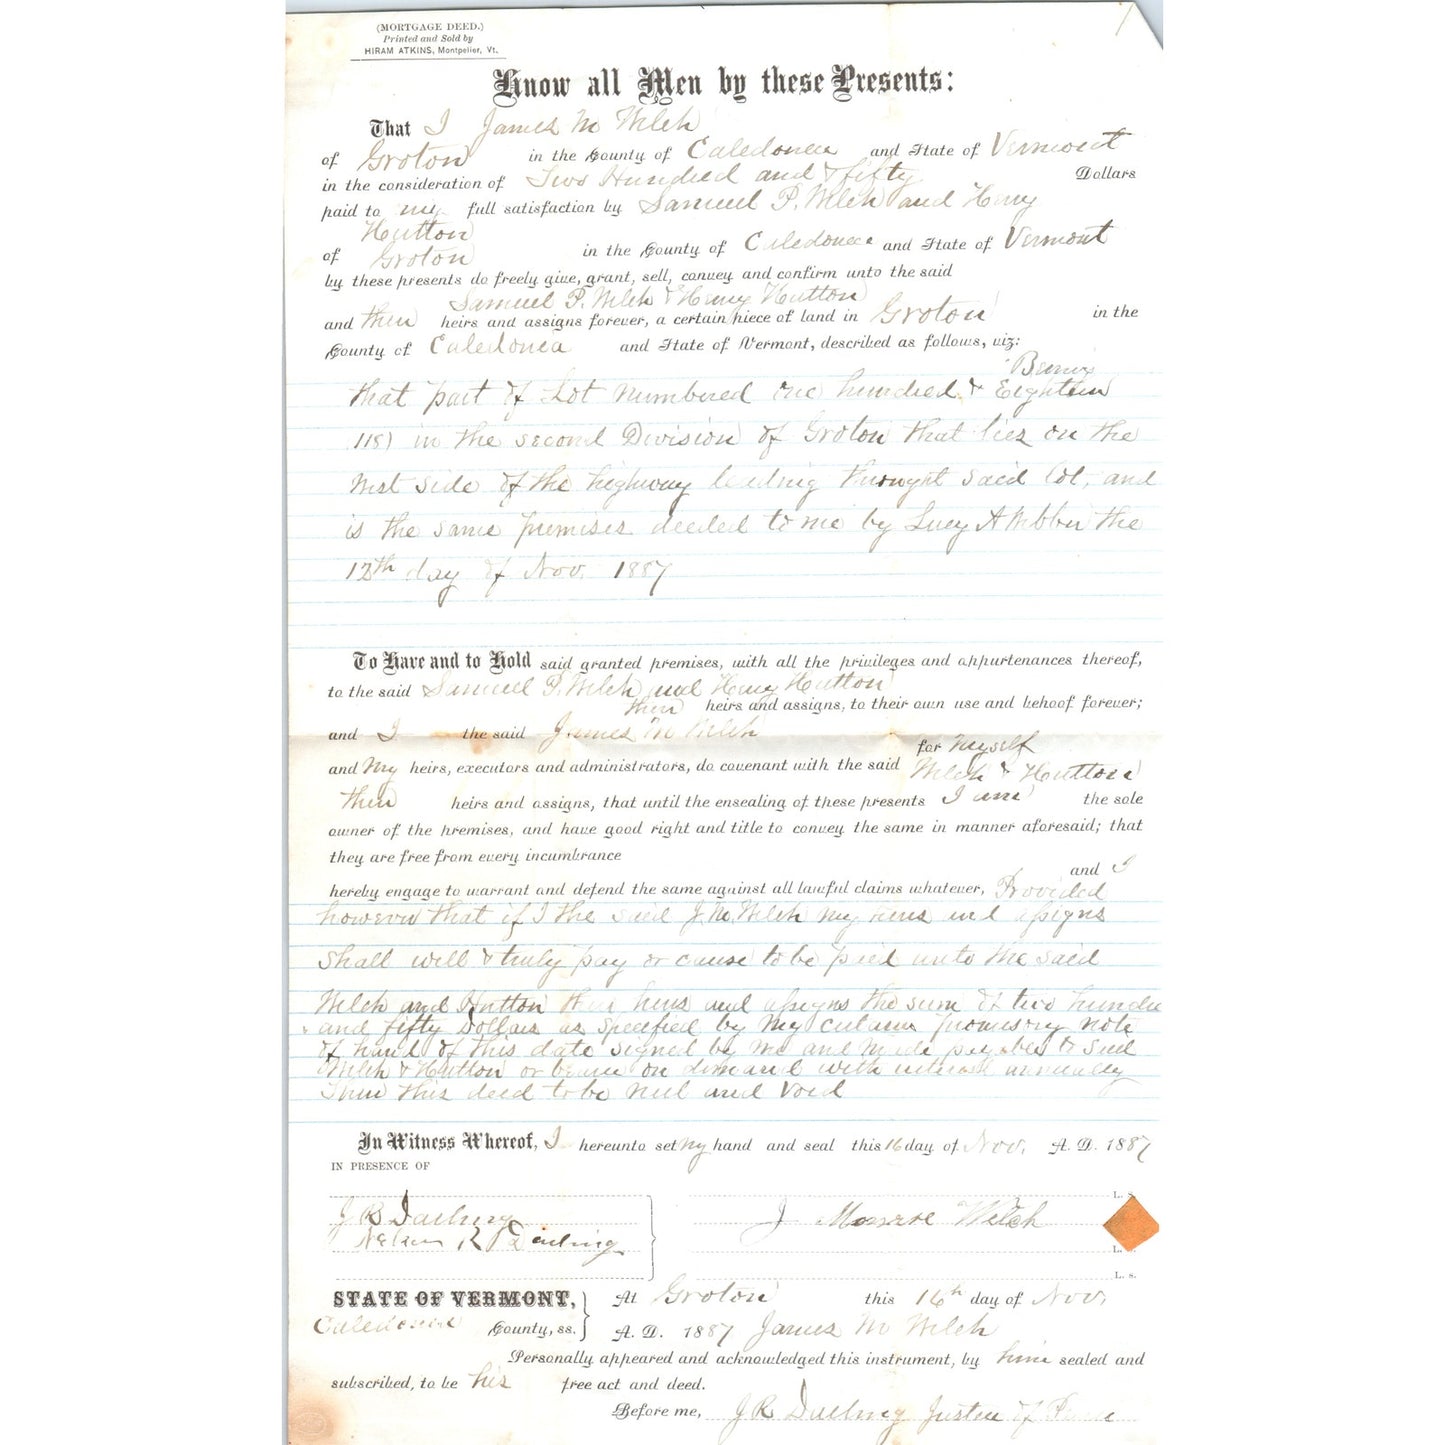 (MORTGAGE DEED.)
Printed and Sold by
HIRAM ATKINS, Montpelier, Vt.
Know all Men by these Presents:
That I James M Welch
of Groton in the County of Caledonia and State of Vermont
in the consideration of Two Hundred and & fifty Dollars
paid to my full satisfaction by Samuel P. Welch and Henry
Hutton
of Groton in the County of Caledonia and State of Vermont
by these presents do freely give, grant, sell, convey and confirm unto the said
Samuel P. Welch & Henry Hutton
and their heirs and assigns forever, a certain piece of land in Groton in the
County of Caledonia and State of Vermont, described as follows, viz:
Being
that part of Lot numbered one hundred & Eighteen
118) in the second Division of Groton that lies on the
West side of the highway leading through said lot, and
is the same premises deeded to me by Lucy A Webber the
12th day of Nov. 1887
To Have and to Hold said granted premises, with all the privileges and appurtenances thereof,
to the said Samuel P. Welch and Henry Hutton
their heirs and assigns, to their own use and behoof forever;
and I the said James M Welch
for Myself
and My heirs, executors and administrators, do covenant with the said Welch & Hutton
their heirs and assigns, that until the ensealing of these presents I am the sole
owner of the premises, and have good right and title to convey the same in manner aforesaid; that
they are free from every incumbrance
and I
hereby engage to warrant and defend the same against all lawful claims whatever, Provided
however that if I the said J. M. Welch my heirs and assigns
Shall well & truly pay or cause to be paid unto the said
Welch and Hutton their heirs and assigns the sum of two hundre
and fifty Dollars as specified by my certain promisory note
of hand of this date signed by me and made payable to said
Welch & Hutton or bearer on demand with interest annually
Then this deed to be null and void
In Witness Whereof, I hereunto set my hand and seal this 16 day of Nov. A. D. 1887
IN PRESENCE OF
L. S.
J R Darling J Monroe Welch
Nelson R Darling L. S.
L. S.
STATE OF VERMONT, At Groton this 16th day of Nov.
Caledonia County, ss. A. D. 1887 James M Welch
Personally appeared and acknowledged this instrument, by him sealed and
subscribed, to be his free act and deed.
Before me, J R Darling Justice of Peace